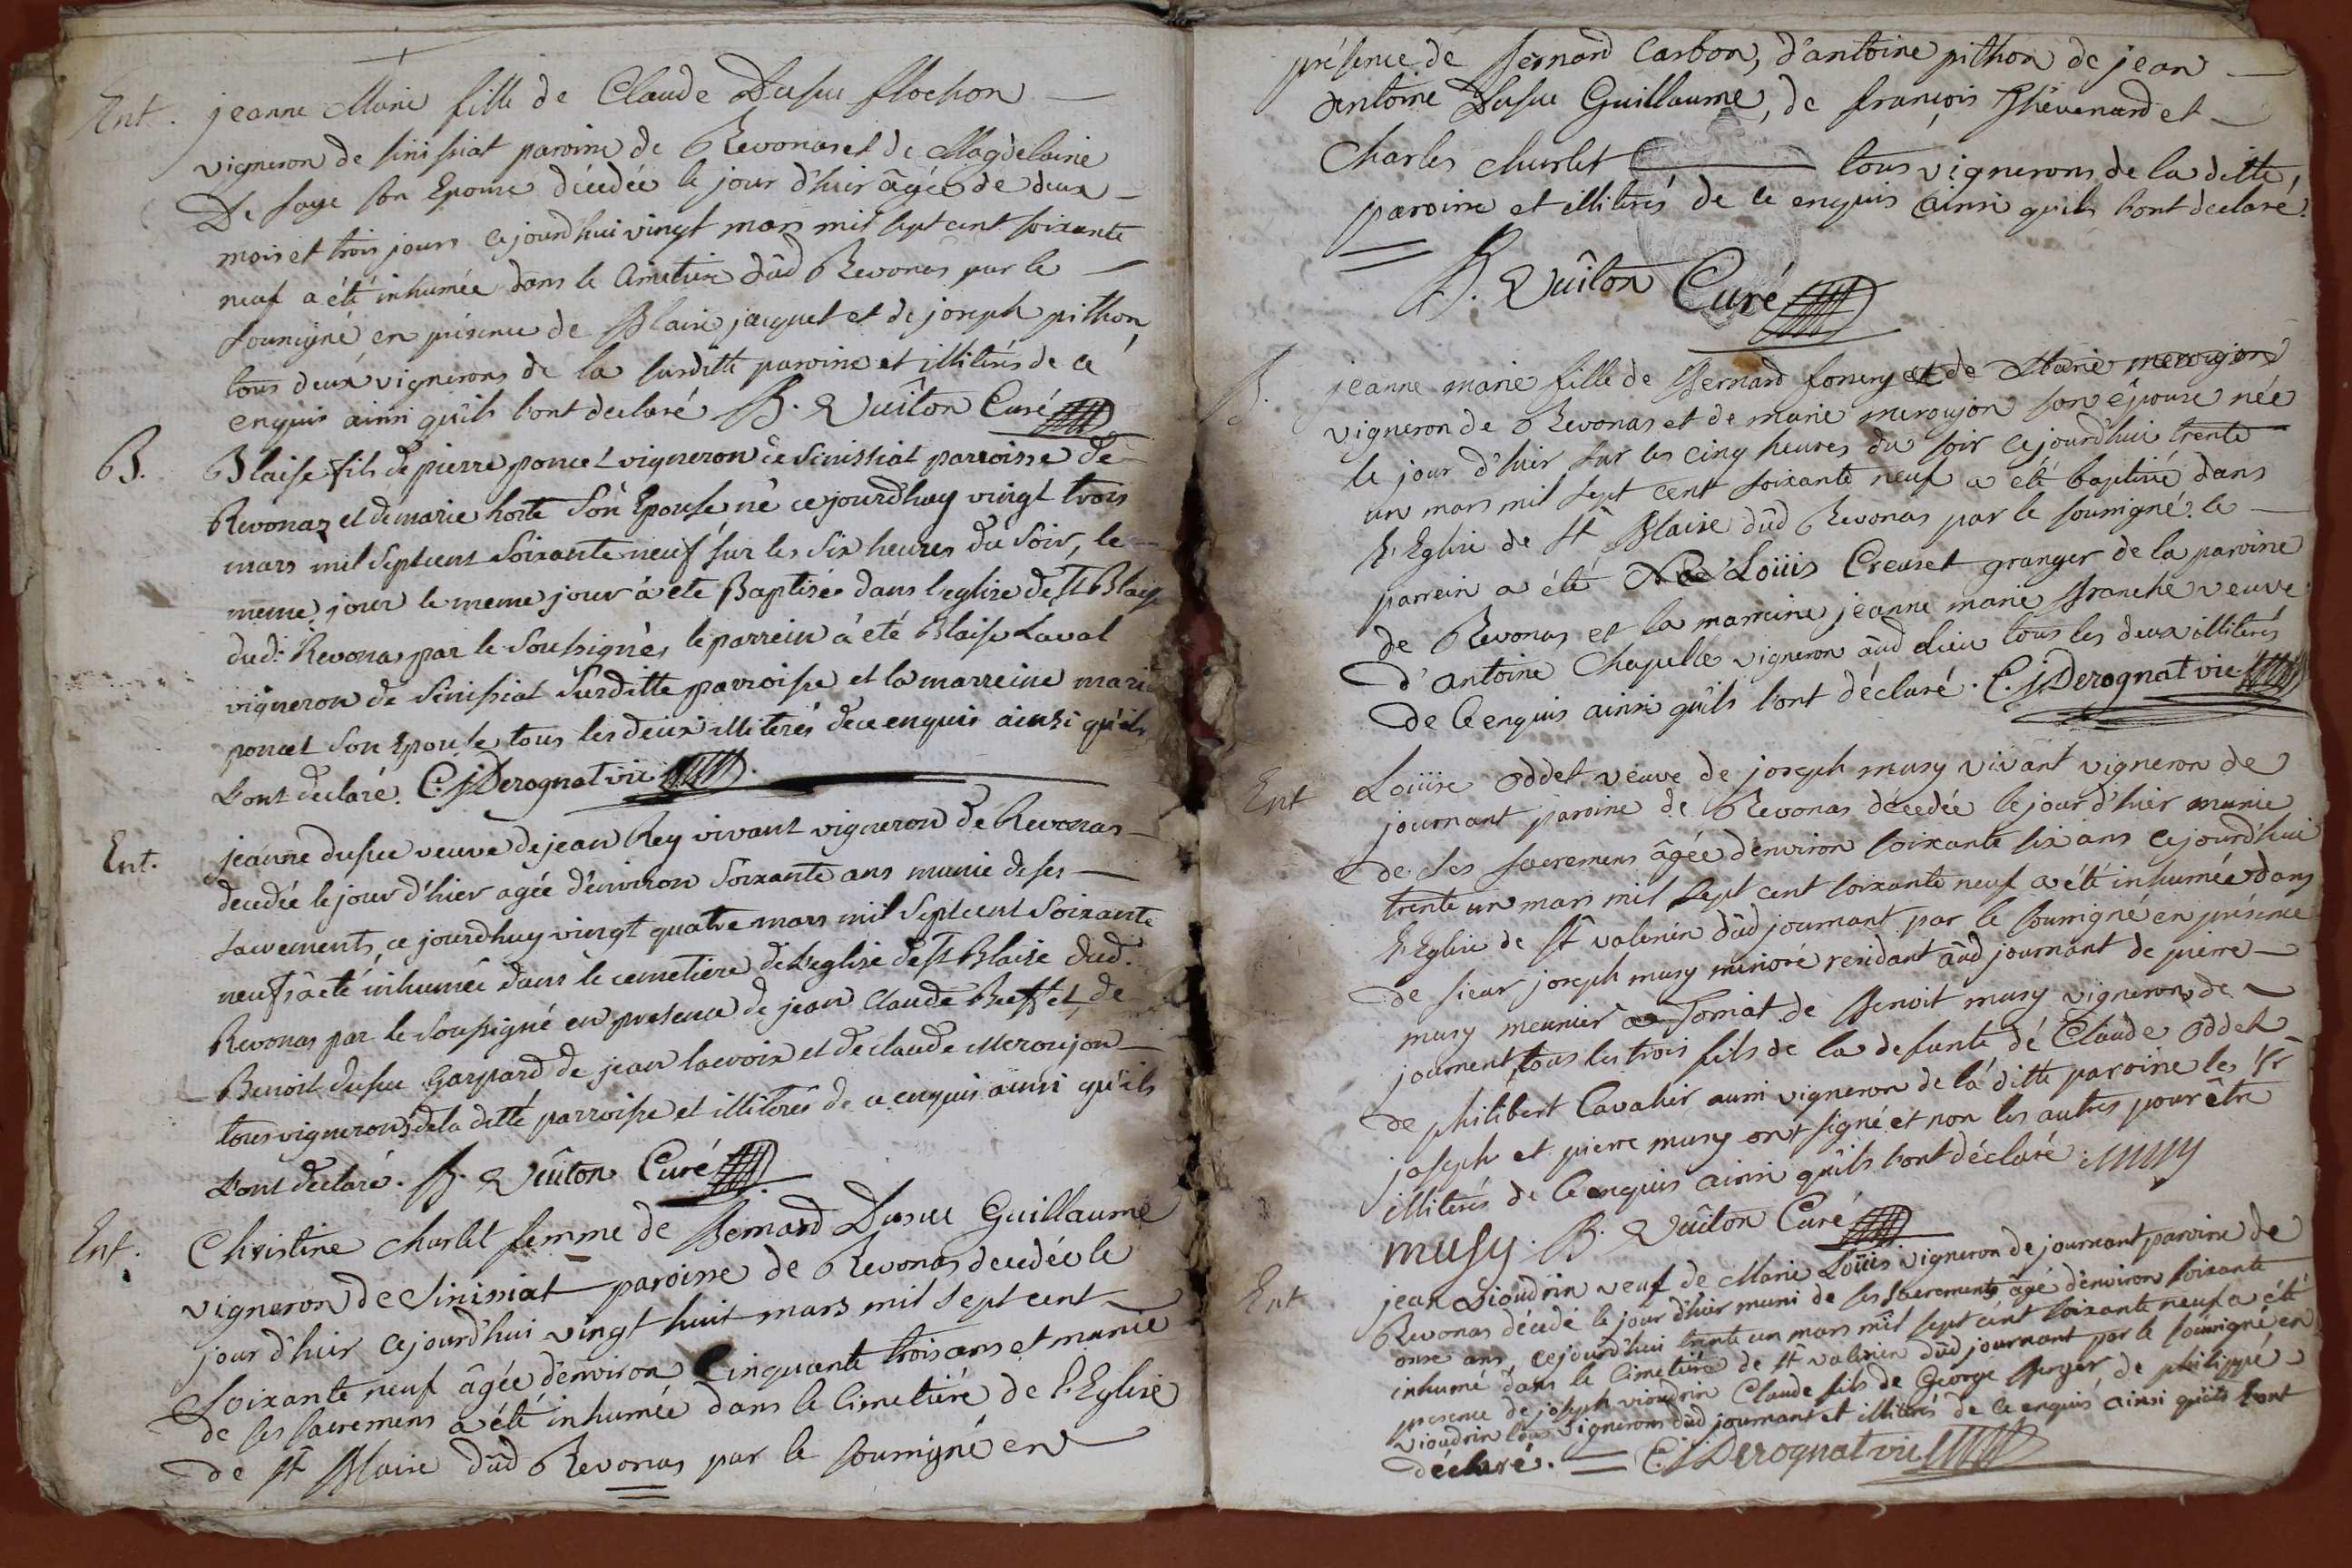 Ent. jeanne Marie fille de Claude Dusuc flochon
vigneron de sinissiat paroisse de Revonas et de Magdelaine
De faye son Epouse décedée le jour d'hier âgée de deux
mois et trois jours cejourd'hui vingt mars mil sept cent soixante
neuf a été inhumée dans le Cimetiere dûd Revonas par le
soussigné en présence de Blaise jacquet et de joseph pithon,
tous deux vignerons de la susditte paroisse et illiterés de ce
enquis ainsi qu'ils l'ont declaré B. Vuiton Curé
B. Blaise fils de pierre poncet vigneron de Sinissiat parroisse de
Revonaz et de marie hoste Son Epouse né cejourdhuy vingt trois
mars mil Septcent Soixante neuf sur les Six heures du Soir, le
meme jour le meme jour à été Baptisé dans l'eglise de st Blaise
dud. Revonas par le Soussignés le parrein à été Blaise Laval
vigneron de Sinissiat Susditte parroisse et la marreine marie
poncet Son Epouse tous les deux illiterés de ce enquis ainsi qu'ils
L'ont declaré. C. J. Derognat vic
Ent. jeanne dusuc veuve de jean Rey vivant vigneron de Revonas
decedée le jour d'hier agée d'environ Soixante ans munie de ses
Sacrements, ce jourdhuy vingt quatre mars mil Septcent Soixante
neuf à été inhumée dans le cemetiere de L'eglise de st Blaise dud.
Revonas par le Soussigné en presence de jean Claude Buffet, de
Benoit dusuc Gaspard de jean lacroix et de claude Meroujon
tous vignerons de la ditte parroisse et illiterés de ce enquis ainsi qu'ils
L'ont declaré. B. Vuiton Curé
Ent. Christine Charlet femme de Bernard Dusuc Guillaume
vigneron de Sinissiat paroisse de Revonas decedée le
jour d'hier cejourd'hui vingt huit mars mil sept cent
Soixante neuf âgée d'environ Cinquante trois ans et munie
de ses sacremens a été inhumée dans le Cimetière de l'Eglise
de st Blaise dûd Revonas par le soussigné en
présence de Bernard Carbon, d'antoine pithon de jean
antoine Dusuc Guillaume, de françois Thévenard et
Charles churlet tous vignerons de la ditte
paroisse et illiterés de ce enquis ainsi qu'ils l'ont declaré.
B. Vuiton Curé
B. jeanne marie fille de Bernard et de Marie meroujon
vigneron de Revonas et de marie meroujon son épouse née
le jour d'hier sur les cinq heures du soir cejourd'hui trente
un mars mil sept cent soixante neuf a été baptisée dans
l'Eglise de st Blaise dûd Revonas par le soussigné. le
parrein a été Loüis Creuset granger de la paroisse
de Revonas et la marreine jeanne marie franche veuve
d'antoine Chapelle vigneron aûd Lieu tous les deux illiterés
de ce enquis ainsi qu'ils l'ont déclaré. C. J. Derognat vic
Ent Loüise oddet veuve de joseph musy vivant vigneron de
journant paroisse de Revonas décedée le jour d'hier munie
de ses sacremens âgée d'environ soixante six ans cejourd'hui
trente un mars mil sept cent soixante neuf a été inhumée dans
l'Eglise de st valerien dûd journant par le soussigné en présence
de sieur joseph musy minoré residant aûd journant de pierre
musy meunier a Tossiat de Benoit musy vigneron de
journent tous les trois fils de la defunte de Claude oddet
de philibert Cavalier aussi vigneron de la ditte paroisse les srs
joseph et pierre musy ont signé et non les autres pour être
illiterés de ce enquis ainsi qu'ils l'ont déclaré. musy
musy. B. Vuiton Curé
Ent jean vioudrin veuf de Marie Loüis vigneron de journant paroisse de
Revonas décedé le jour d'hier muni de ses sacrements âgé d'environ soixante
onse ans, cejourd'hui trente un mars mil sept cent soixante neuf a été
inhumé dans le Cimetiere de st valerien dûd journant par le soussigné en
presence de joseph vioudrin Claude fils de George Berger, de philippe
vioudrin tous vignerons dûd journant et illiterés de ce enquis ainsi qu'ils l'ont
déclaré. C. J. Derognat vic